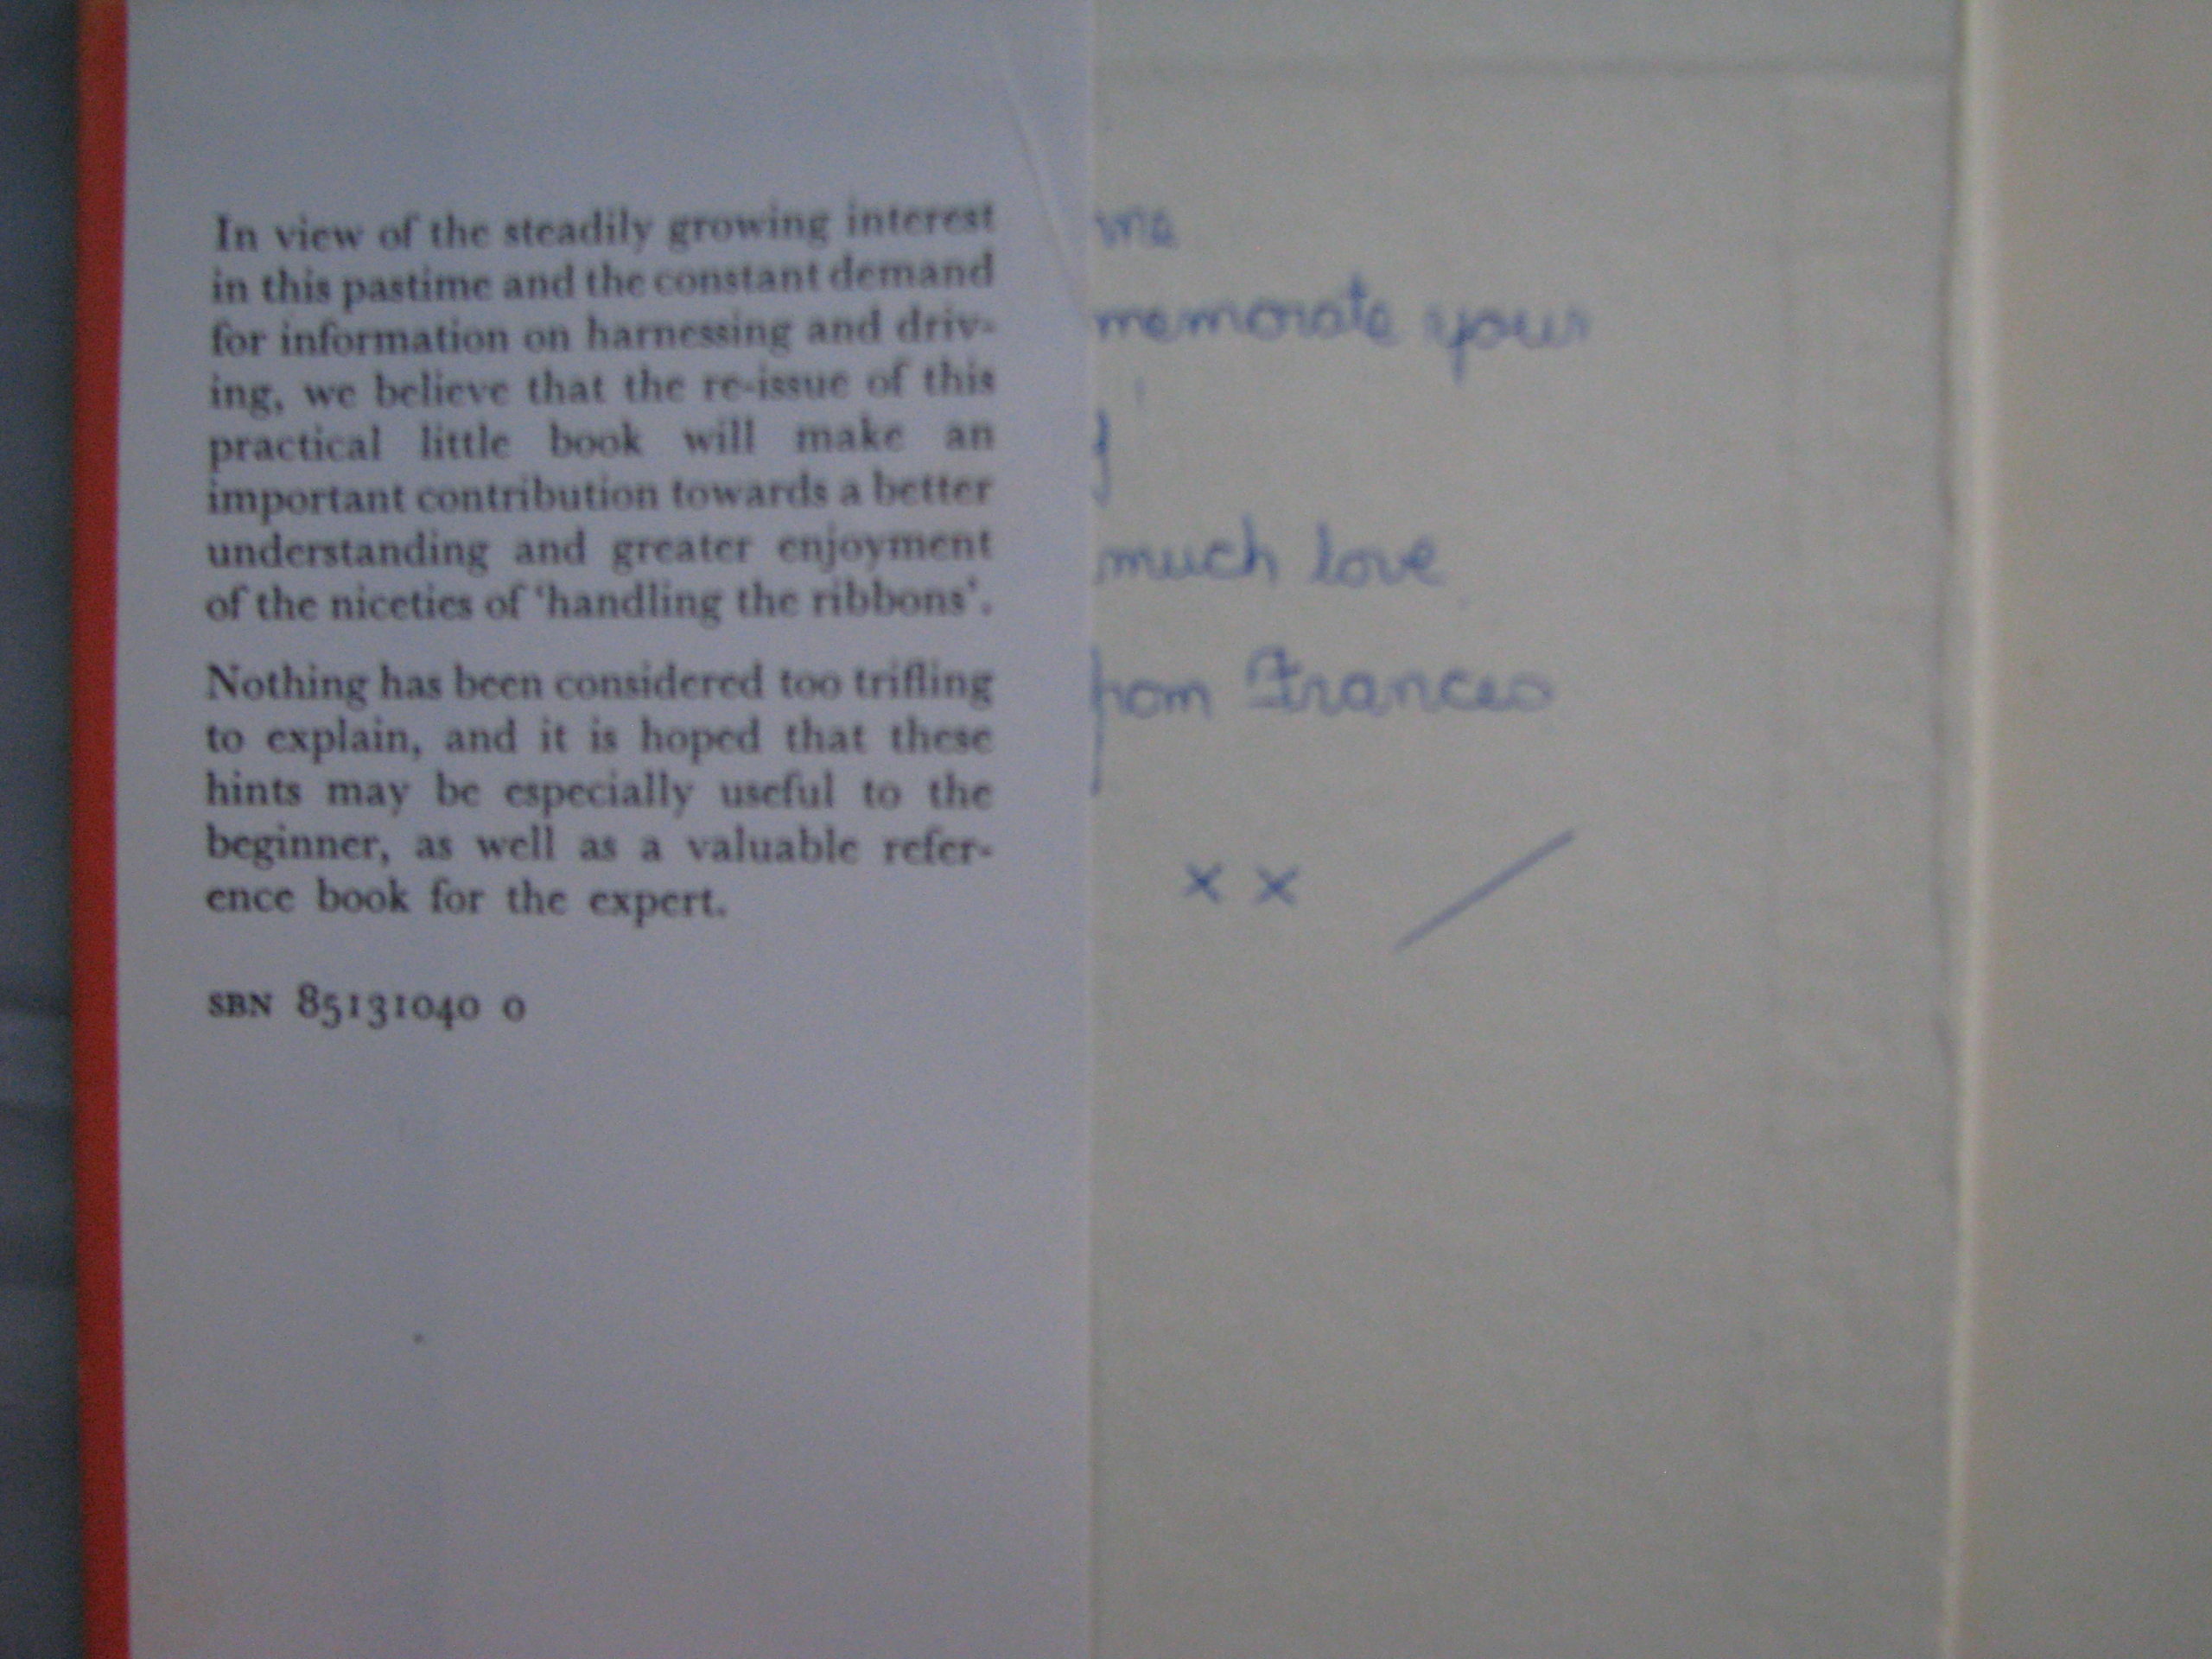 In view of the steadily growing interest
in this pastime and the constant demand
for information on harnessing and driv-
ing, we believe that the re-issue of this
practical little book will make an
important contribution towards a better
understanding and greater enjoyment
of the niceties of 'handling the ribbons'.
Nothing has been considered too trifling
to explain, and it is hoped that these
hints may be especially useful to the
beginner, as well as a valuable refer-
ence book for the expert.
SBN 85131040 0
memorate your
much love
from Frances
x x